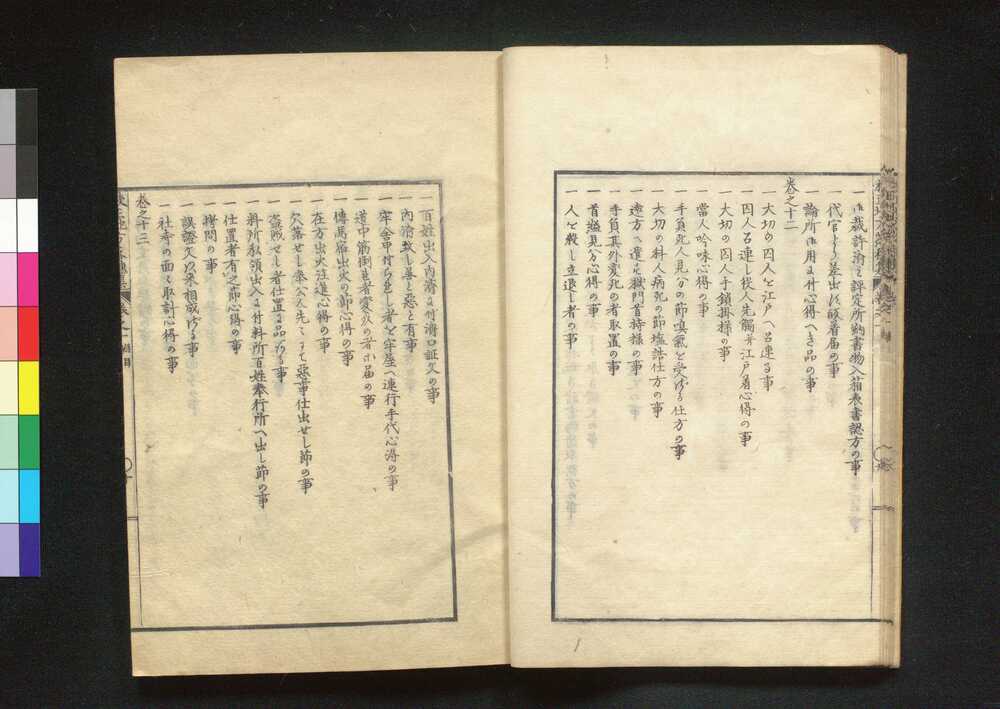 一御裁許済之評定所納書物入箱表書認方の事
一代官より差出候段着届の事
一論所御用ニ付心得へき品の事
巻之十二
一大切の囚人を江戸へ召連る事
一囚人召連し役人先觸并江戸着心得の事
一大切の囚人手鎖掛様の事
一當人吟味心得の事
一手負死人見分の節嗅氣を受さる仕方の事
一大切の科人病死の節塩詰仕方の事
一遠方へ遣す獄門首持様の事
一手負其外変死の者取置の事
一首縊見分心得の事
一人を殺し立退し者の事
一百姓出入内濟ニ付濟口証文の事
一内濟致し善と悪と有事
一牢舎申付られし者を牢屋へ連行手代心得の事
一道中筋倒見者変死の者等届の事
一傳馬宿出火の節心得の事
一在方出火注進心得の事
一欠落せし奉公人先々にて悪事仕出せし節の事
一盗賊せし者仕置る品ある事
一料所私領出入ニ付料所百姓奉行所へ出し節の事
一仕置者有之節心得の事
一拷問の事
一誤證文以来相成さる事
巻之十三
一社寺の面々取計心得の事